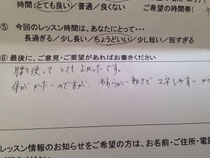 時間：とても良い／普通／良くない　ご希望の時間帯（
⑤ 今回のレッスン時間は、あなたにとって・・・
長過ぎる／少し長い／ちょうどいい／少し短い／短すぎる
⑥ 最後に、ご意見・ご要望があればお書きください
腰を使って とても よかったです。
体が かたい ので すが、 やわらかい 動きで
レッスン情報のお知らせをご希望の方は、お名前・ご住所・電話